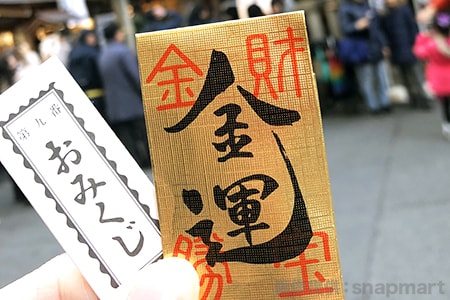 第九番
おみくじ
金運
財
金
宝
賜
: snapmart